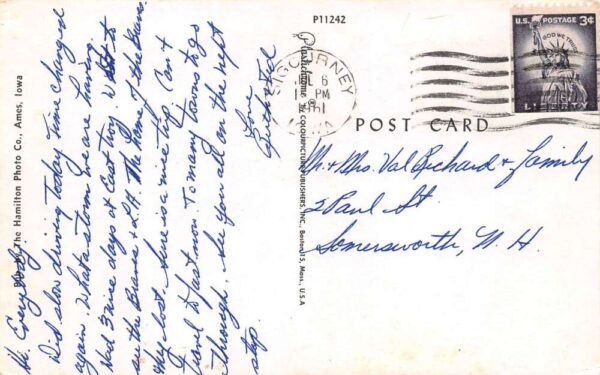 P11242
U.S. POSTAGE 3¢
IN GOD WE TRUST
LIBERTY
SIGOURNEY
6
PM
1961
POST CARD
Mr. + Mrs. Val Richard + family
2 Paul St
Somersworth, N. H.
Plastichrome ® by COLOURPICTURE PUBLISHERS, INC., Boston 15, Mass., U.S.A
The Hamilton Photo Co., Ames, Iowa
Hi Everybody
Did slow driving today time changed
again. What a storm we are having.
Had 3 nice days at East Troy. Went to
see the Braves + L.A. the name of the Braves
lost. Sure is a nice trip Can't
travel to fast now. To many towns to go
through. See you all on the next
stop.
Love
Ted